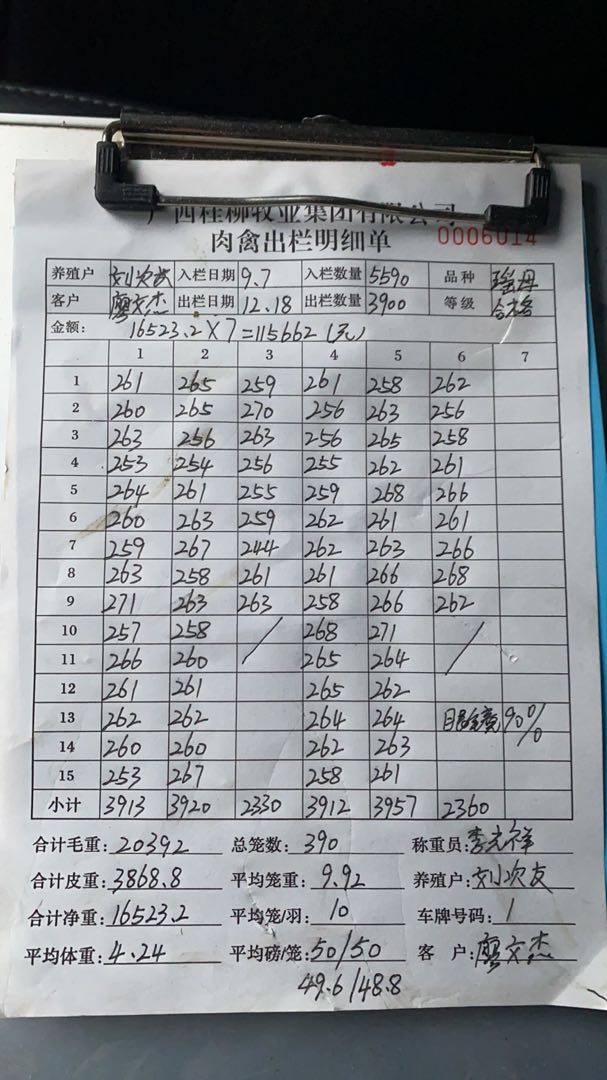 广西桂柳牧业集团有限公司
肉禽出栏明细单 0006014
养殖户 刘次友 入栏日期 9.7 入栏数量 5590 品种 瑶丹
客户 廖文杰 出栏日期 12.18 出栏数量 3900 等级 合格
金额: 16523.2×7=115662 (元)
1 2 3 4 5 6 7
1 261 265 259 261 258 262
2 260 265 270 256 263 256
3 263 256 263 256 265 258
4 253 254 256 255 262 261
5 264 261 255 259 268 266
6 260 263 259 262 261 261
7 259 267 244 262 263 266
8 263 258 261 261 266 268
9 271 263 263 258 266 262
10 257 258 / 268 271 /
11 266 260 265 264
12 261 261 265 262
13 262 262 264 264 90%
14 260 260 262 263
15 253 267 258 261
小计 3913 3920 2330 3912 3957 2360
合计毛重: 20392 总笼数: 390 称重员: 李光祥
合计皮重: 3868.8 平均笼重: 9.92 养殖户: 刘次友
合计净重: 16523.2 平均笼/羽: 10 车牌号码: 1
平均体重: 4.24 平均磅/笼: 50/50 客 户: 廖文杰
49.6/48.8